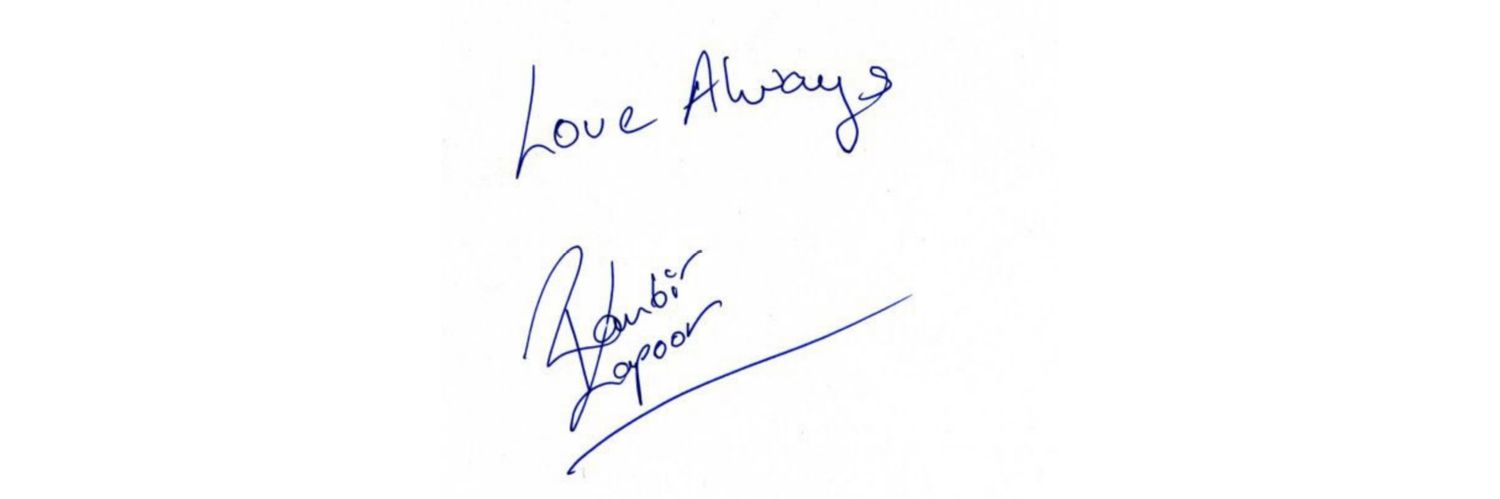 Love Always
Ranbir
Kapoor